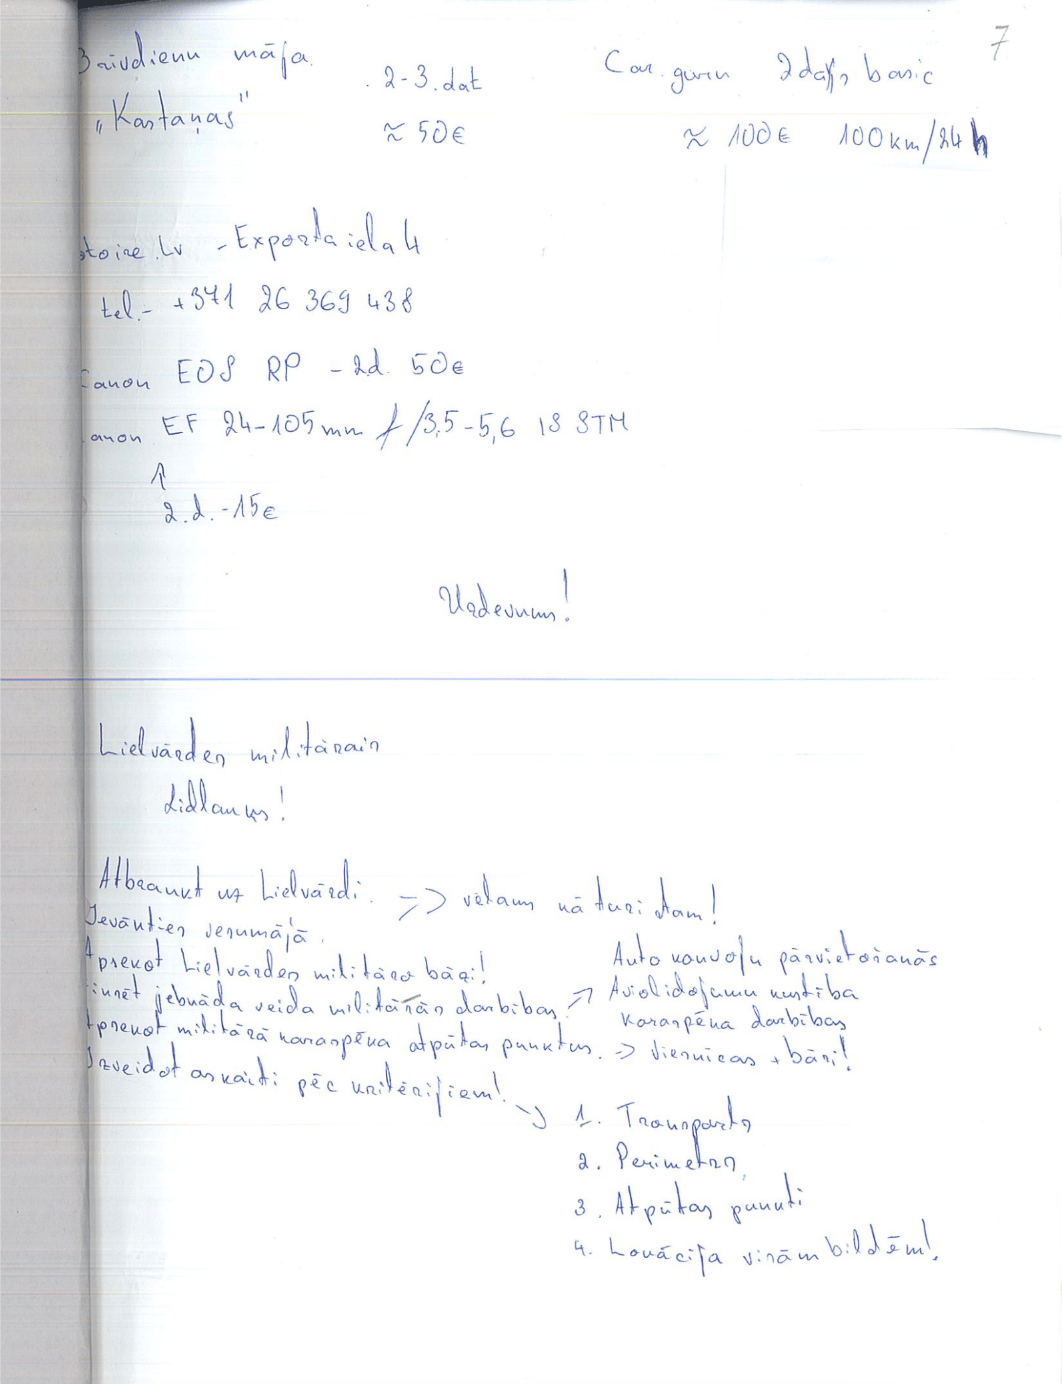 7
Brīvdienu māja
"Kastaņas"
2-3. dat
≈ 50€
Car guru 2 days basic
≈ 100€ 100km/24h
store.lv - Exporta iela 4
tel.- +371 26 369 438
Canon EOS RP - 2d. 50€
Canon EF 24-105mm f/3,5-5,6 IS STM
↑
2.d. - 15€
Uzdevums!
Lielvārdes militārais
Lidlauks!
Atbraukt uz Lielvārdi. => vēlams kā tūristam!
Ievākties
Apsekot Lielvārdes militāro bāzi!
jebkāda veida militārās darbības. =>
Auto konvoju pārvietošanās
Aviolidojumu kustība
Karaspēka darbības
Apsekot militārā karaspēka atpūtas punktus. => Viesnīcas + bāri!
Izveidot atskaiti pēc kritērijiem! =>
1. Transports
2. Perimetrs
3. Atpūtas punkti
4. Lokācija visām bildēm!